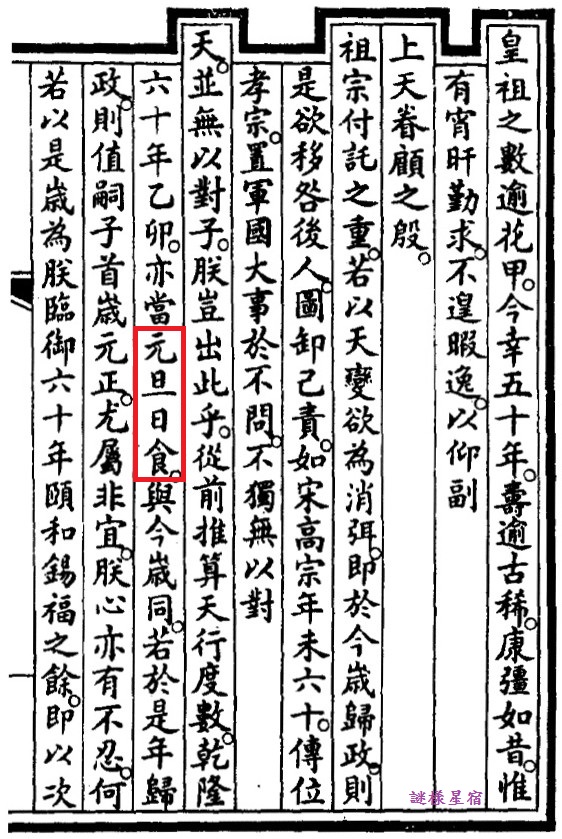 皇祖之數逾花甲。今幸五十年。壽逾古稀。康彊如昔。惟
有宵旰勤求。不遑暇逸。以仰副
上天眷顧之殷。
祖宗付託之重。若以天變欲為消弭。即於今歲歸政。則
是欲移咎後人。圖卸己責。如宋高宗年未六十。傳位
孝宗。置軍國大事於不問。不獨無以對
天。並無以對子。朕豈出此乎。從前推算天行度數。乾隆
六十年乙卯。亦當元旦日食。與今歲同。若於是年歸
政。則值嗣子首歲元正。尤屬非宜。朕心亦有不忍。何
若以是歲為朕臨御六十年頤和錫福之餘。即以次
謎樣星宿